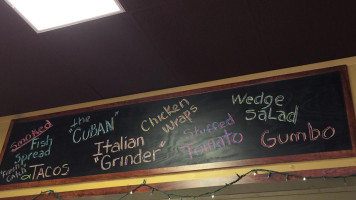 Smoked
Fish
Spread
"Fort
Chili
TACOS
"the
CUBAN"
Italian
"Grinder"
Chicken
Wraps
Stuffed
Tomato
Wedge
Salad
Gumbo